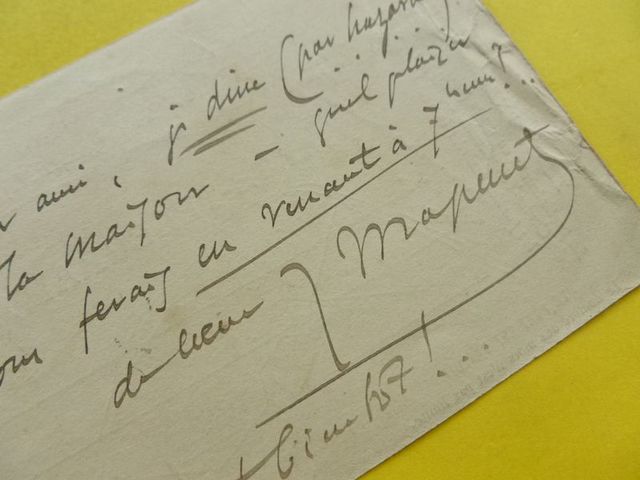 ami, je dîne (par hazard)
la maison - quel plaisir
ferais en venant à 7 heures?...
de coeur J Massenet
+ bientôt!...